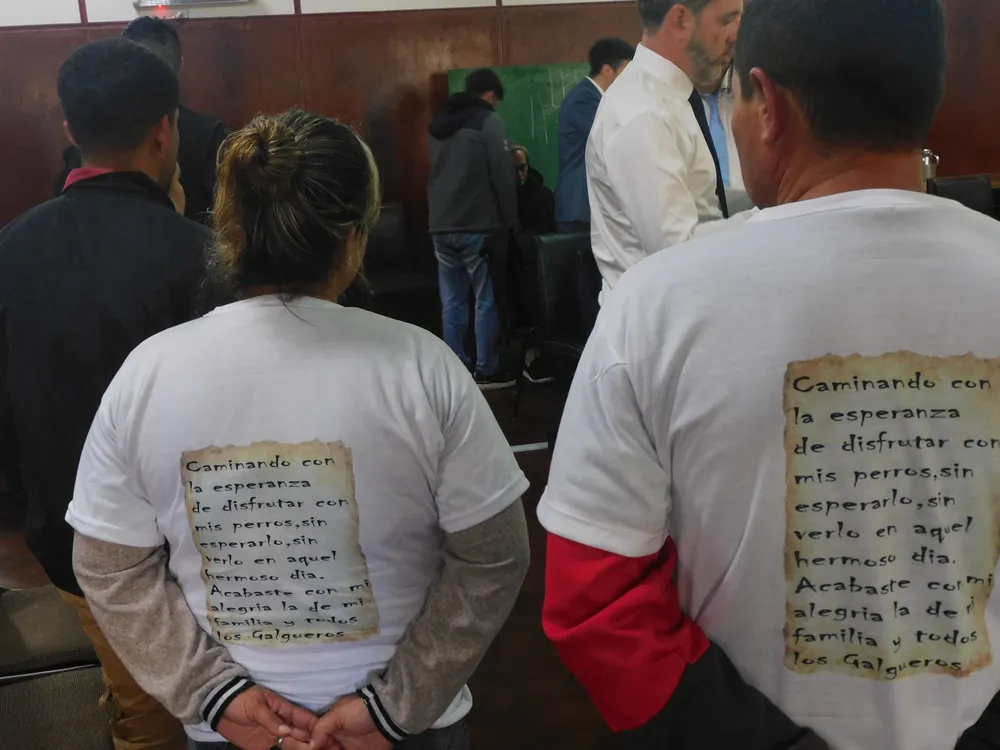 Caminando con
la esperanza
de disfrutar con
mis perros,sin
esperarlo,sin
verlo en aquel
hermoso dia.
Acabaste con mi
alegria la de mi
familia y todos
los Galgueros
Caminando con
la esperanza
de disfrutar con
mis perros,sin
esperarlo,sin
verlo en aquel
hermoso dia.
Acabaste con mi
alegria la de mi
familia y todos
los Galgueros